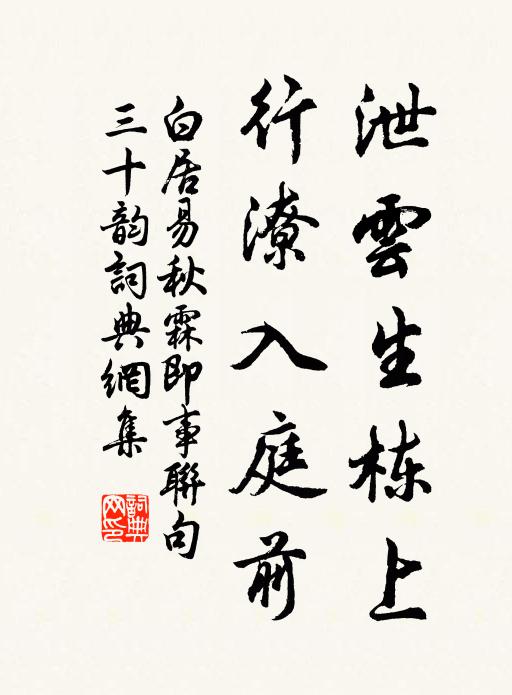 泄雲生栋上
行潦入庭前
白居易秋霖即事聯句
三十韵詞典網集
詞典
网印